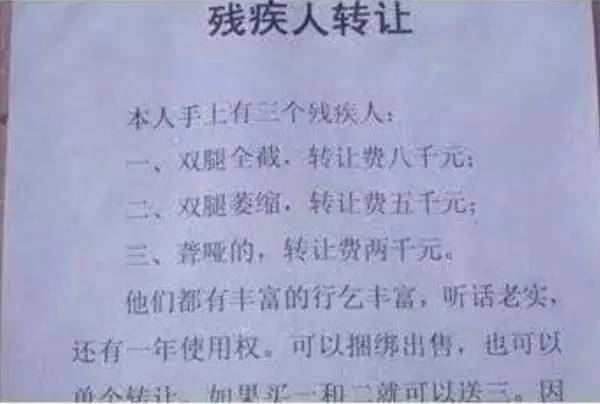 残疾人转让
本人手上有三个残疾人：
一、双腿全截，转让费八千元；
二、双腿萎缩，转让费五千元；
三、聋哑的，转让费两千元。
他们都有丰富的行乞丰富，听话老实，
还有一年使用权。可以捆绑出售，也可以
单个转让。如果买一和二就可以送三。因